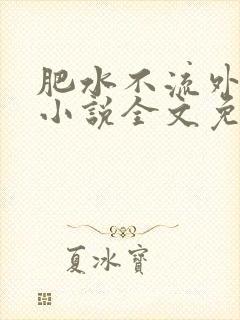 肥水不流外
小說全文免
夏冰寶